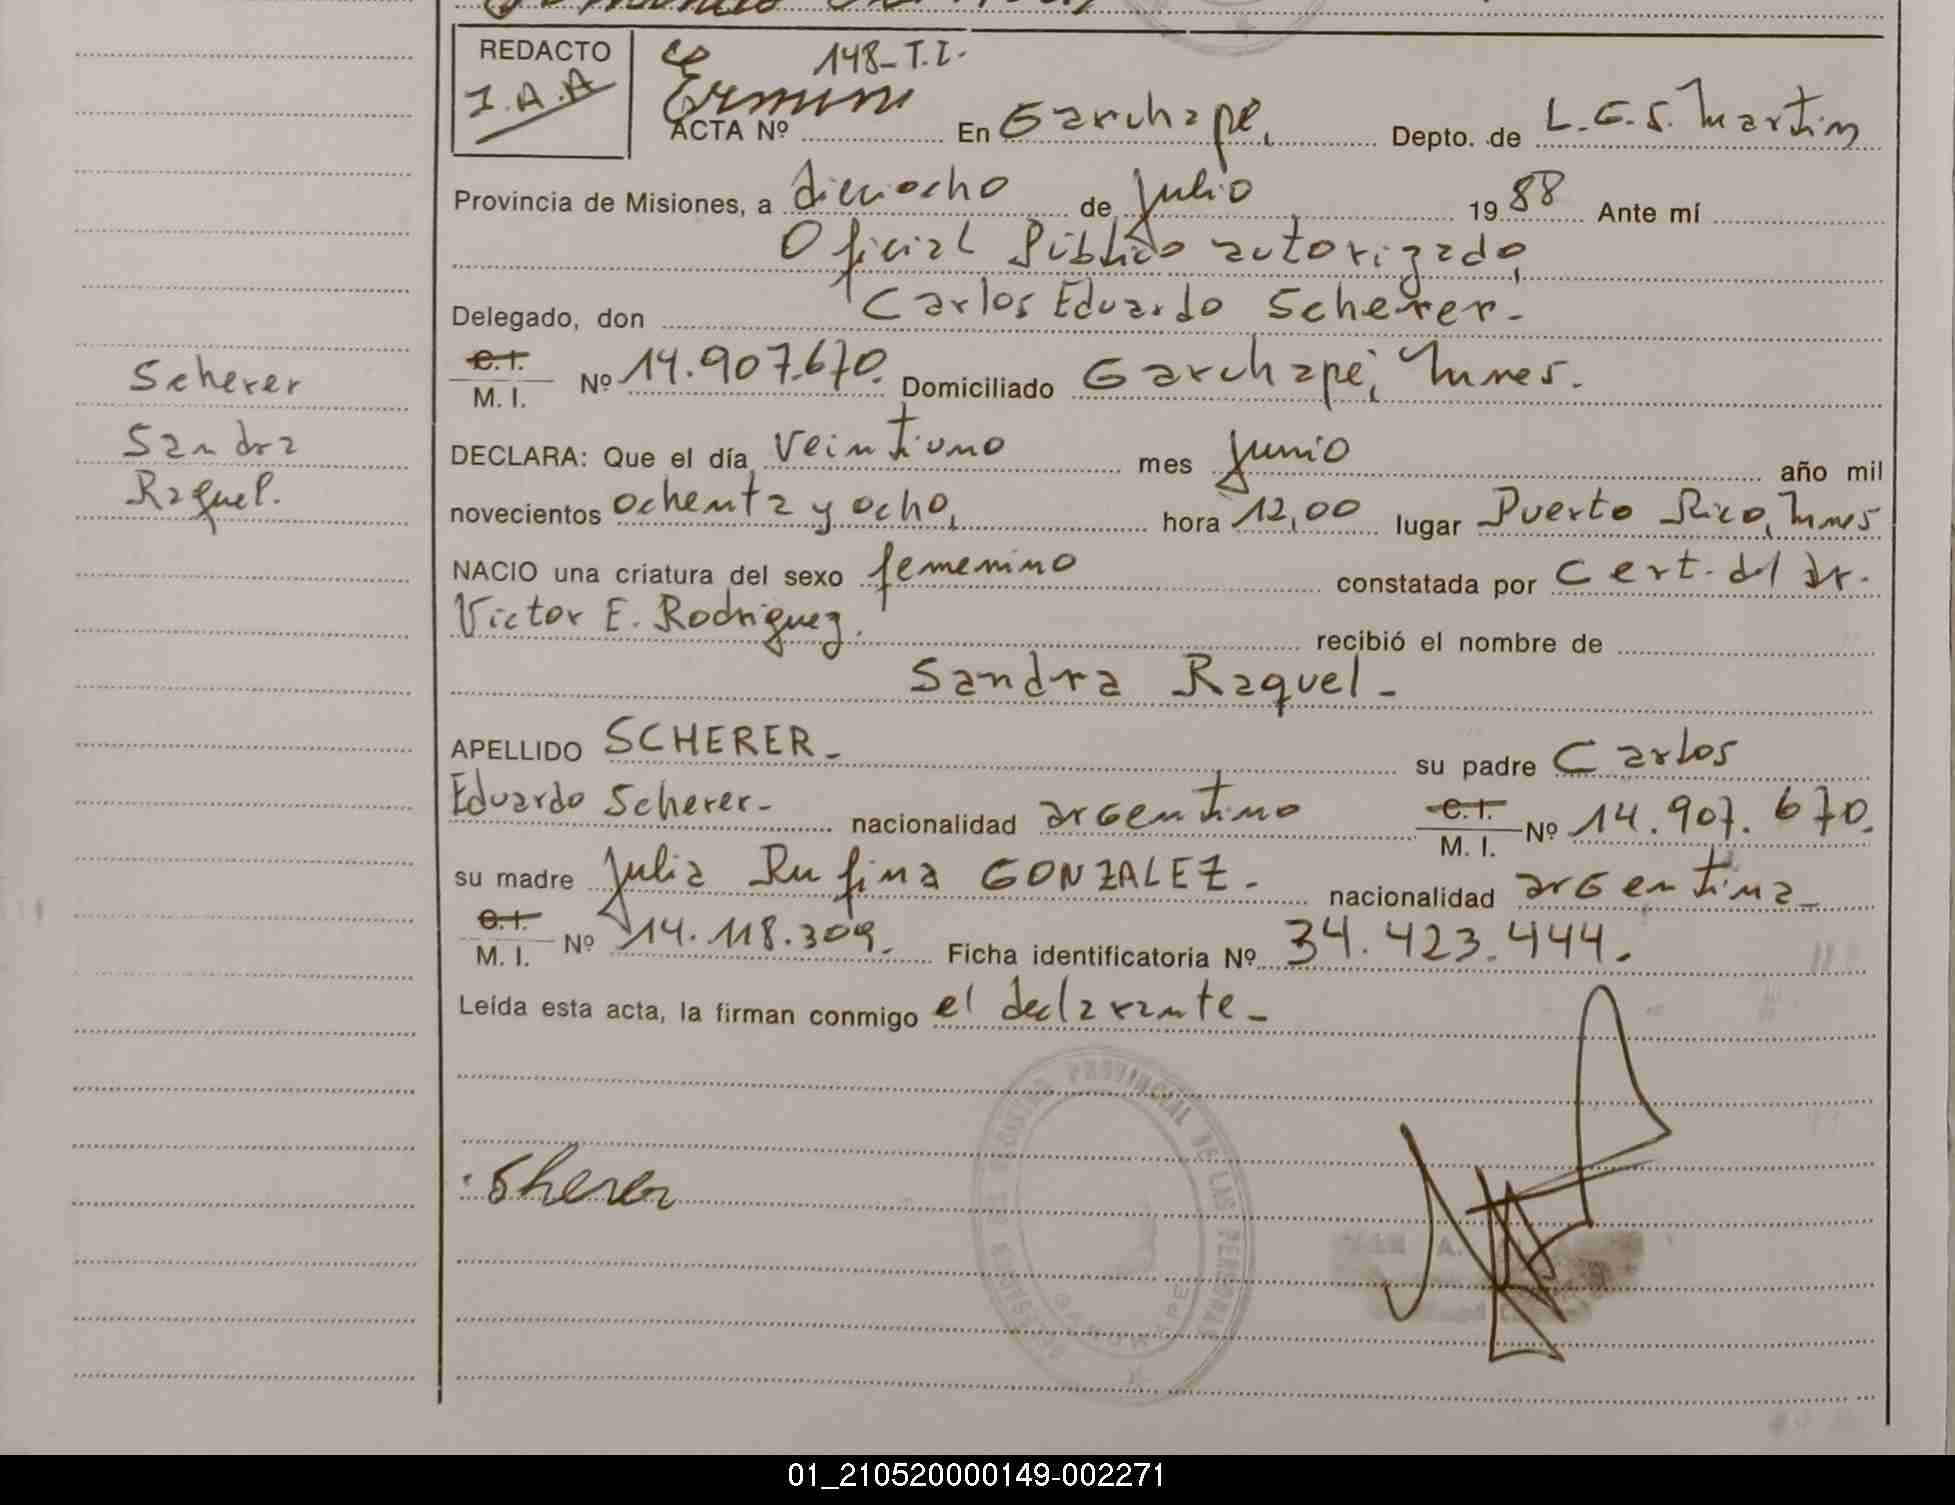 REDACTO
I.A.A
148-T.I.
ACTA Nº En Garuhapé, Depto. de L.G.S. Martin
Provincia de Misiones, a dieciocho de Julio 1988 Ante mí
Oficial Público autorizado,
Delegado, don Carlos Eduardo Scherer-
C.I. M. I. Nº 14.907.670. Domiciliado Garuhapé, Mnes.
Scherer
Sandra
Raquel.
DECLARA: Que el día veintiuno mes Junio año mil
novecientos ochenta y ocho, hora 12,00 lugar Puerto Rico, Mnes
NACIO una criatura del sexo femenino constatada por Cert. del Dr.
Victor E. Rodriguez. recibió el nombre de
Sandra Raquel-
APELLIDO SCHERER- su padre Carlos
Eduardo Scherer- nacionalidad argentino C.I. M. I. Nº 14.907.670.
su madre Julia Rufina GONZALEZ- nacionalidad argentina-
C.I. M. I. Nº 14.118.309. Ficha identificatoria Nº 34.423.444.
Leída esta acta, la firman conmigo el declarante-
REGISTRO PROVINCIAL DE LAS PERSONAS
MISIONES
GARUHAPE
Sherer
01_210520000149-002271